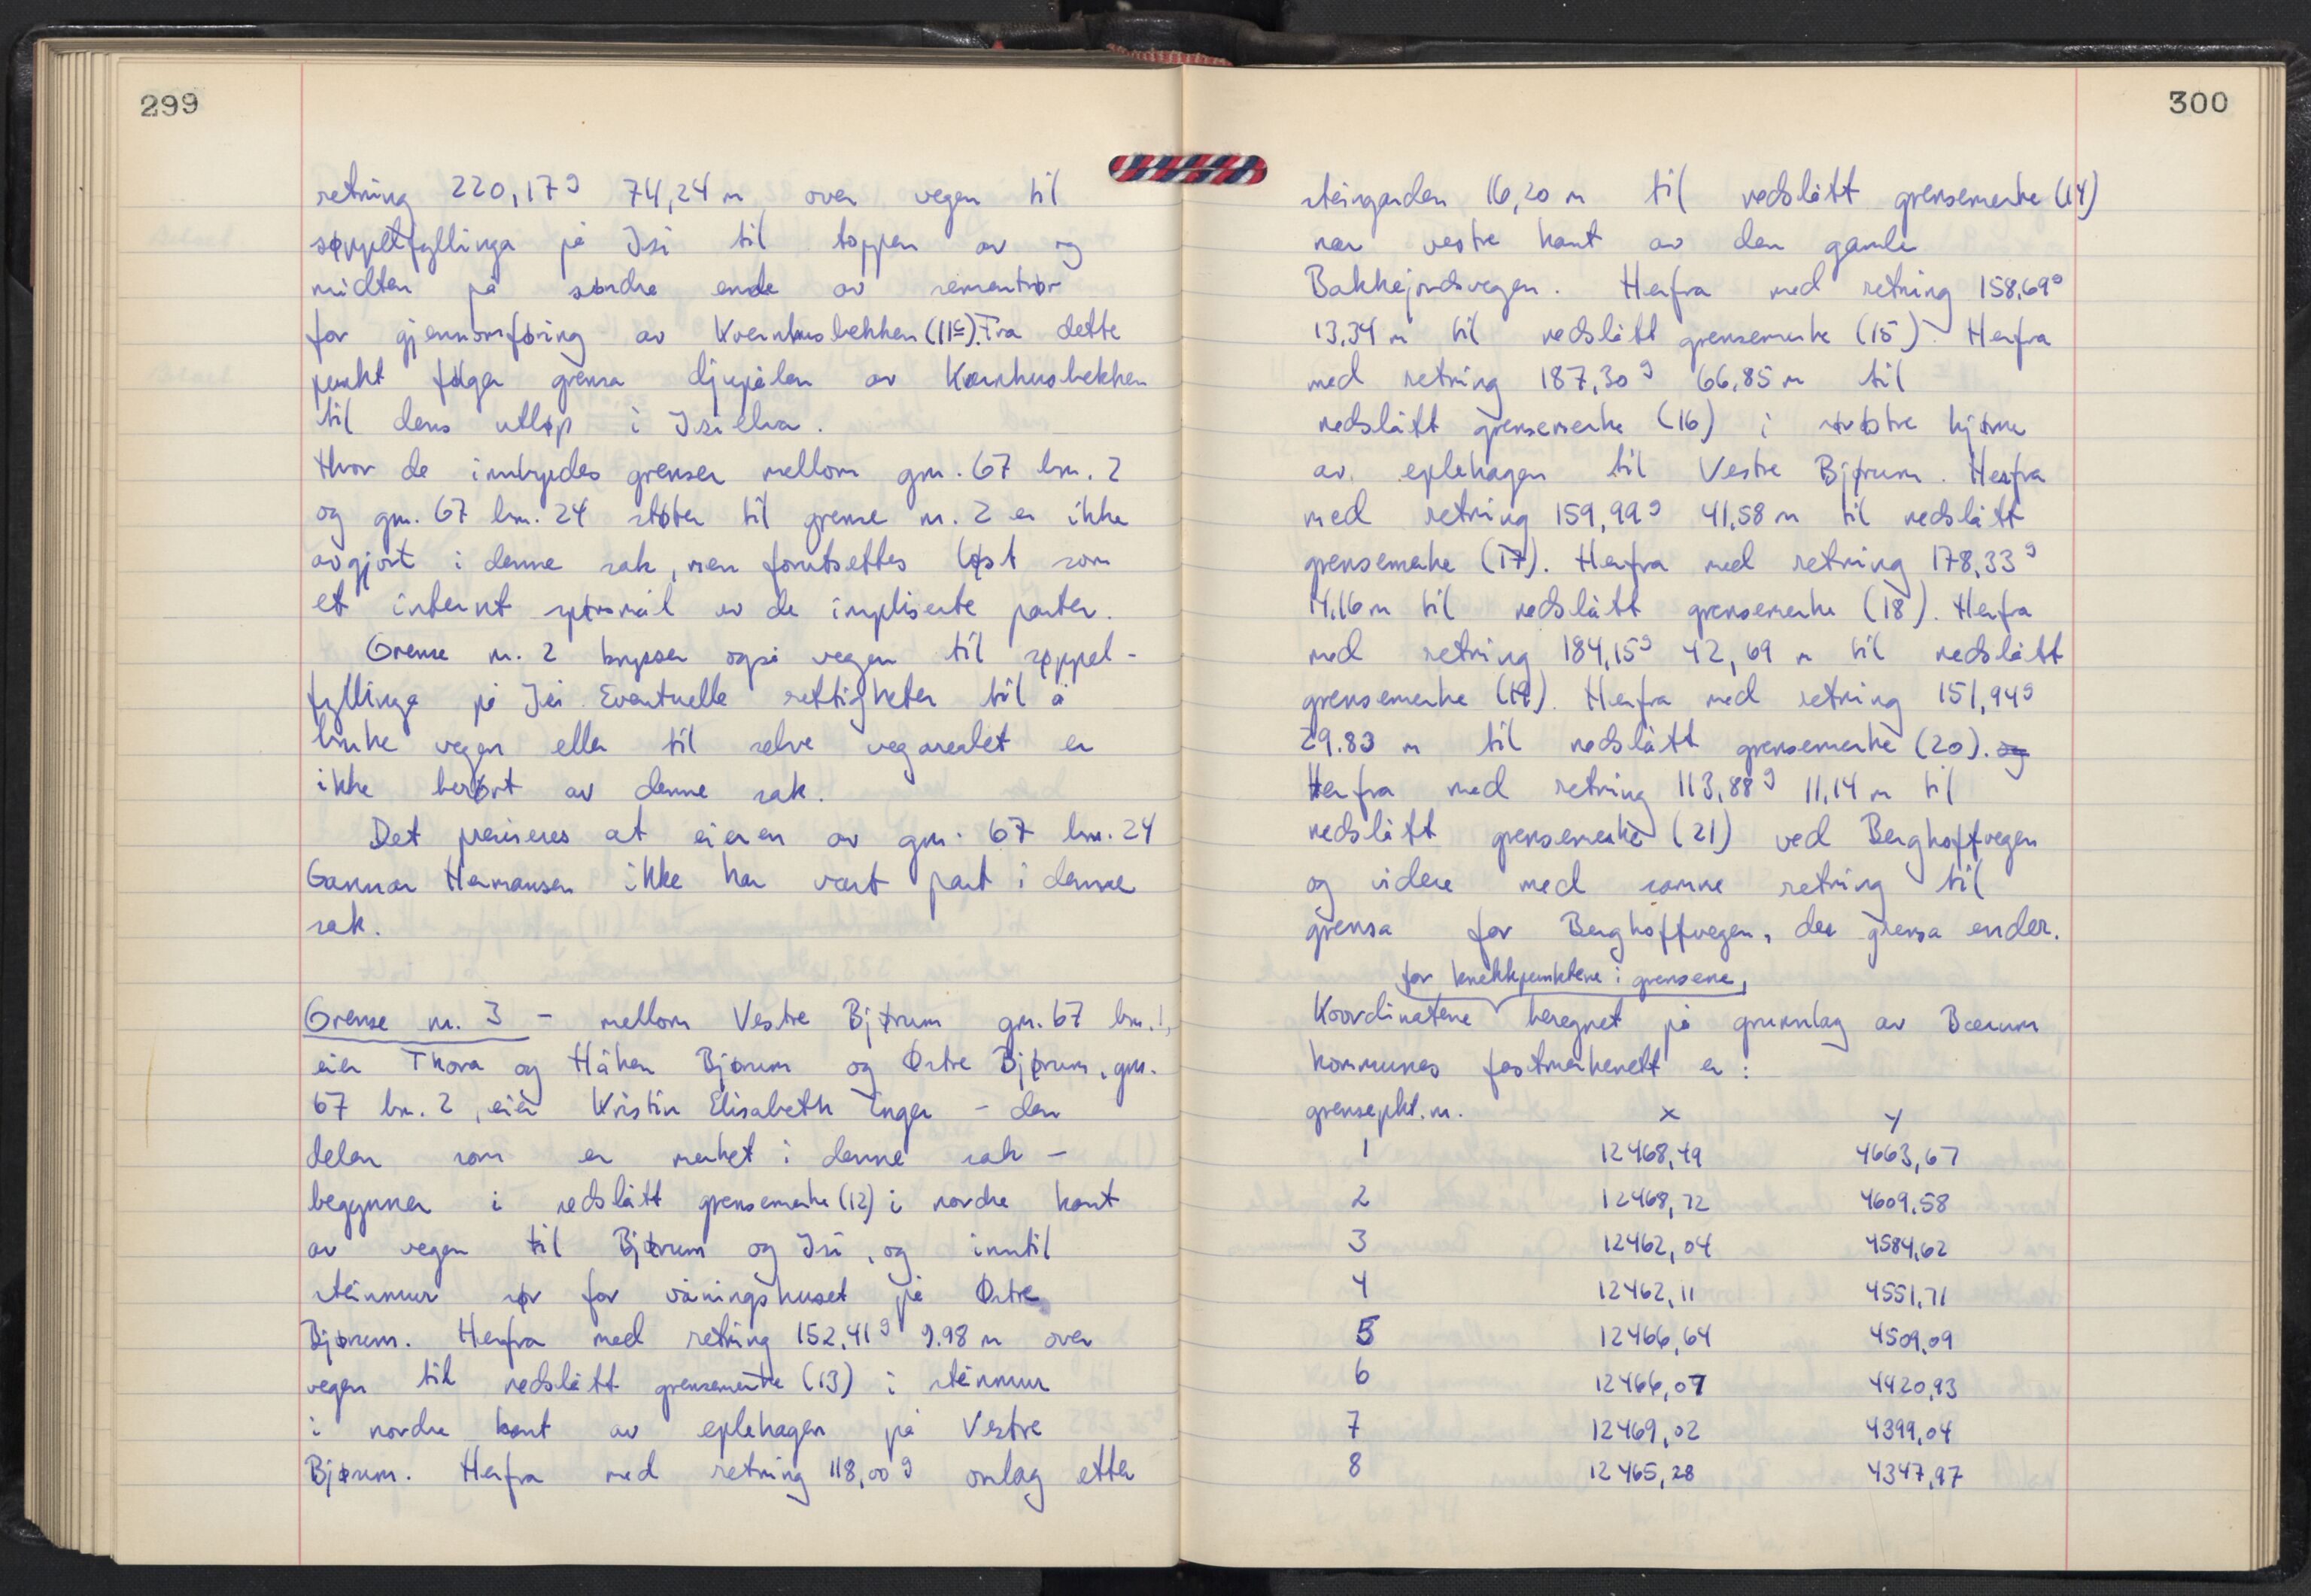 299
retning 220,17g 74,24 m over vegen til
søppelfyllinga på Isi til toppen av og
midten på søndre ende av sementrør
for gjennomføring av Kvernhusbekken (11c). Fra dette
punkt følger grensa djupålen av Kvernhusbekken
til dens utløp i Isielva.
Hvor de innbyrdes grenser mellom gnr. 67 bnr. 2
og gnr. 67 bnr. 24 støter til grense nr. 2 er ikke
avgjort i denne sak, men forutsettes løst som
et internt spørsmål av de impliserte parter.
Grense nr. 2 krysser også vegen til søppel-
fyllinga på Isi. Eventuelle rettigheter til å
bruke vegen eller til selve vegarealet er
ikke berørt av denne sak.
Det presiseres at eieren av gnr. 67 bnr. 24
Gunnar Hermansen ikke har vært part i denne
sak.
Grense nr. 3 - mellom Vestre Bjørum gnr. 67 bnr. 1,
eier Thora og Håken Bjørum og Østre Bjørum, gnr.
67 bnr. 2, eier Kristin Elisabeth Enger - den
delen som er merket i denne sak -
begynner i nedslått grensemerke (12) i nordre kant
av vegen til Bjørum og Isi, og inntil
steinmur sør for våningshuset på Østre
Bjørum. Herfra med retning 152,41g 9.98 m over
vegen til nedslått grensemerke (13) i steinmur
i nordre kant av eplehagen på Vestre
Bjørum. Herfra med retning 118,00g omlag etter
300
steingarden 16,20 m til nedslått grensemerke (14)
nær vestre kant av den gamle
Bakkejordsvegen. Herfra med retning 158,69g
13,34 m til nedslått grensemerke (15). Herfra
med retning 187,30g 66,85 m til
nedslått grensemerke (16) i østre hjørne
av eplehagen til Vestre Bjørum. Herfra
med retning 159,99g 41,58 m til nedslått
grensemerke (17). Herfra med retning 178,33g
14,16 m til nedslått grensemerke (18). Herfra
med retning 184,15g 42,69 m til nedslått
grensemerke (19). Herfra med retning 151,94g
29.83 m til nedslått grensemerke (20). og
Herfra med retning 113,88g 11,14 m til
nedslått grensemerke (21) ved Berghoffvegen
og videre med samme retning til
grensa for Berghoffvegen, der grensa ender.
for knekkpunktene i grensene,
Koordinatene beregnet på grunnlag av Bærum
kommunes fastmerkenett er:
grensepkt. nr. x y
1 12468,49 4663,67
2 12468,72 4609.58
3 12462,04 4584,62
4 12462,11 4551,71
5 12466,64 4509,09
6 12466,07 4420,93
7 12469,02 4399,04
8 12465,28 4347,97